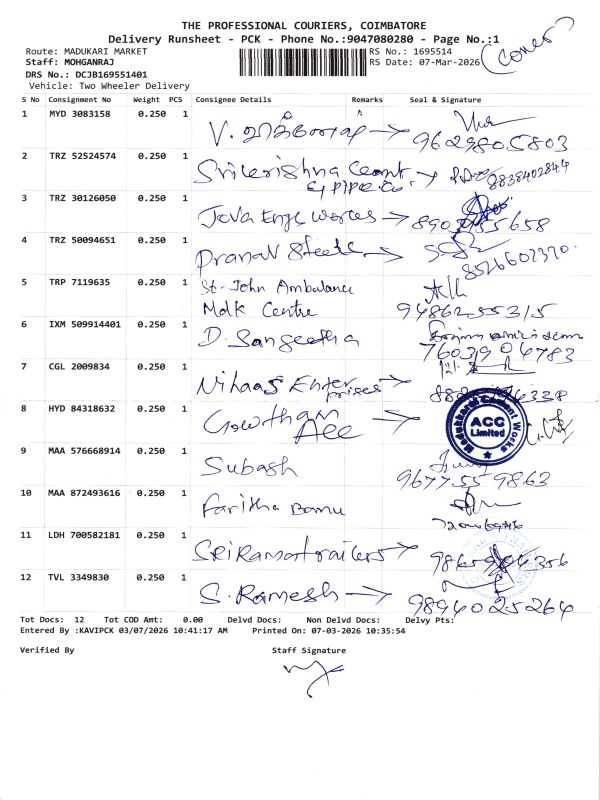 THE PROFESSIONAL COURIERS, COIMBATORE
Delivery Runsheet - PCK - Phone No.:9047080280 - Page No.:1
Route: MADUKARI MARKET RS No.: 1695514
Staff: MOHGANRAJ RS Date: 07-Mar-2026
DRS No.: DCJB169551401
Vehicle: Two Wheeler Delivery
S No Consignment No Weight PCS Consignee Details Remarks Seal & Signature
1 MYD 3083158 0.250 1 V.
9629805803
2 TRZ 52524574 0.250 1 Srikrishna Cemt
& Pipe Co. 8838402844
3 TRZ 30126050 0.250 1 Java Enge works
4 TRZ 50094651 0.250 1 Pranav Steele
8526602370.
5 TRP 7119635 0.250 1 St-John Ambulance
Mdk Centre 9486255315
6 IXM 509914401 0.250 1 D. Sangeetha
7603904783
7 CGL 2009834 0.250 1 Nihaas Enterprises
8 HYD 84318632 0.250 1 Gowtham
Acc
Madukkarai Cement Works
ACC
Limited
9 MAA 576668914 0.250 1 Subash
9677559863
10 MAA 872493616 0.250 1 Faritha Banu
11 LDH 700582181 0.250 1 Sri Rama trailers
12 TVL 3349830 0.250 1 S. Ramesh
9894025264
Tot Docs: 12 Tot COD Amt: 0.00 Delvd Docs: Non Delvd Docs: Delvy Pts:
Entered By :KAVIPCK 03/07/2026 10:41:17 AM Printed On: 07-03-2026 10:35:54
Verified By Staff Signature